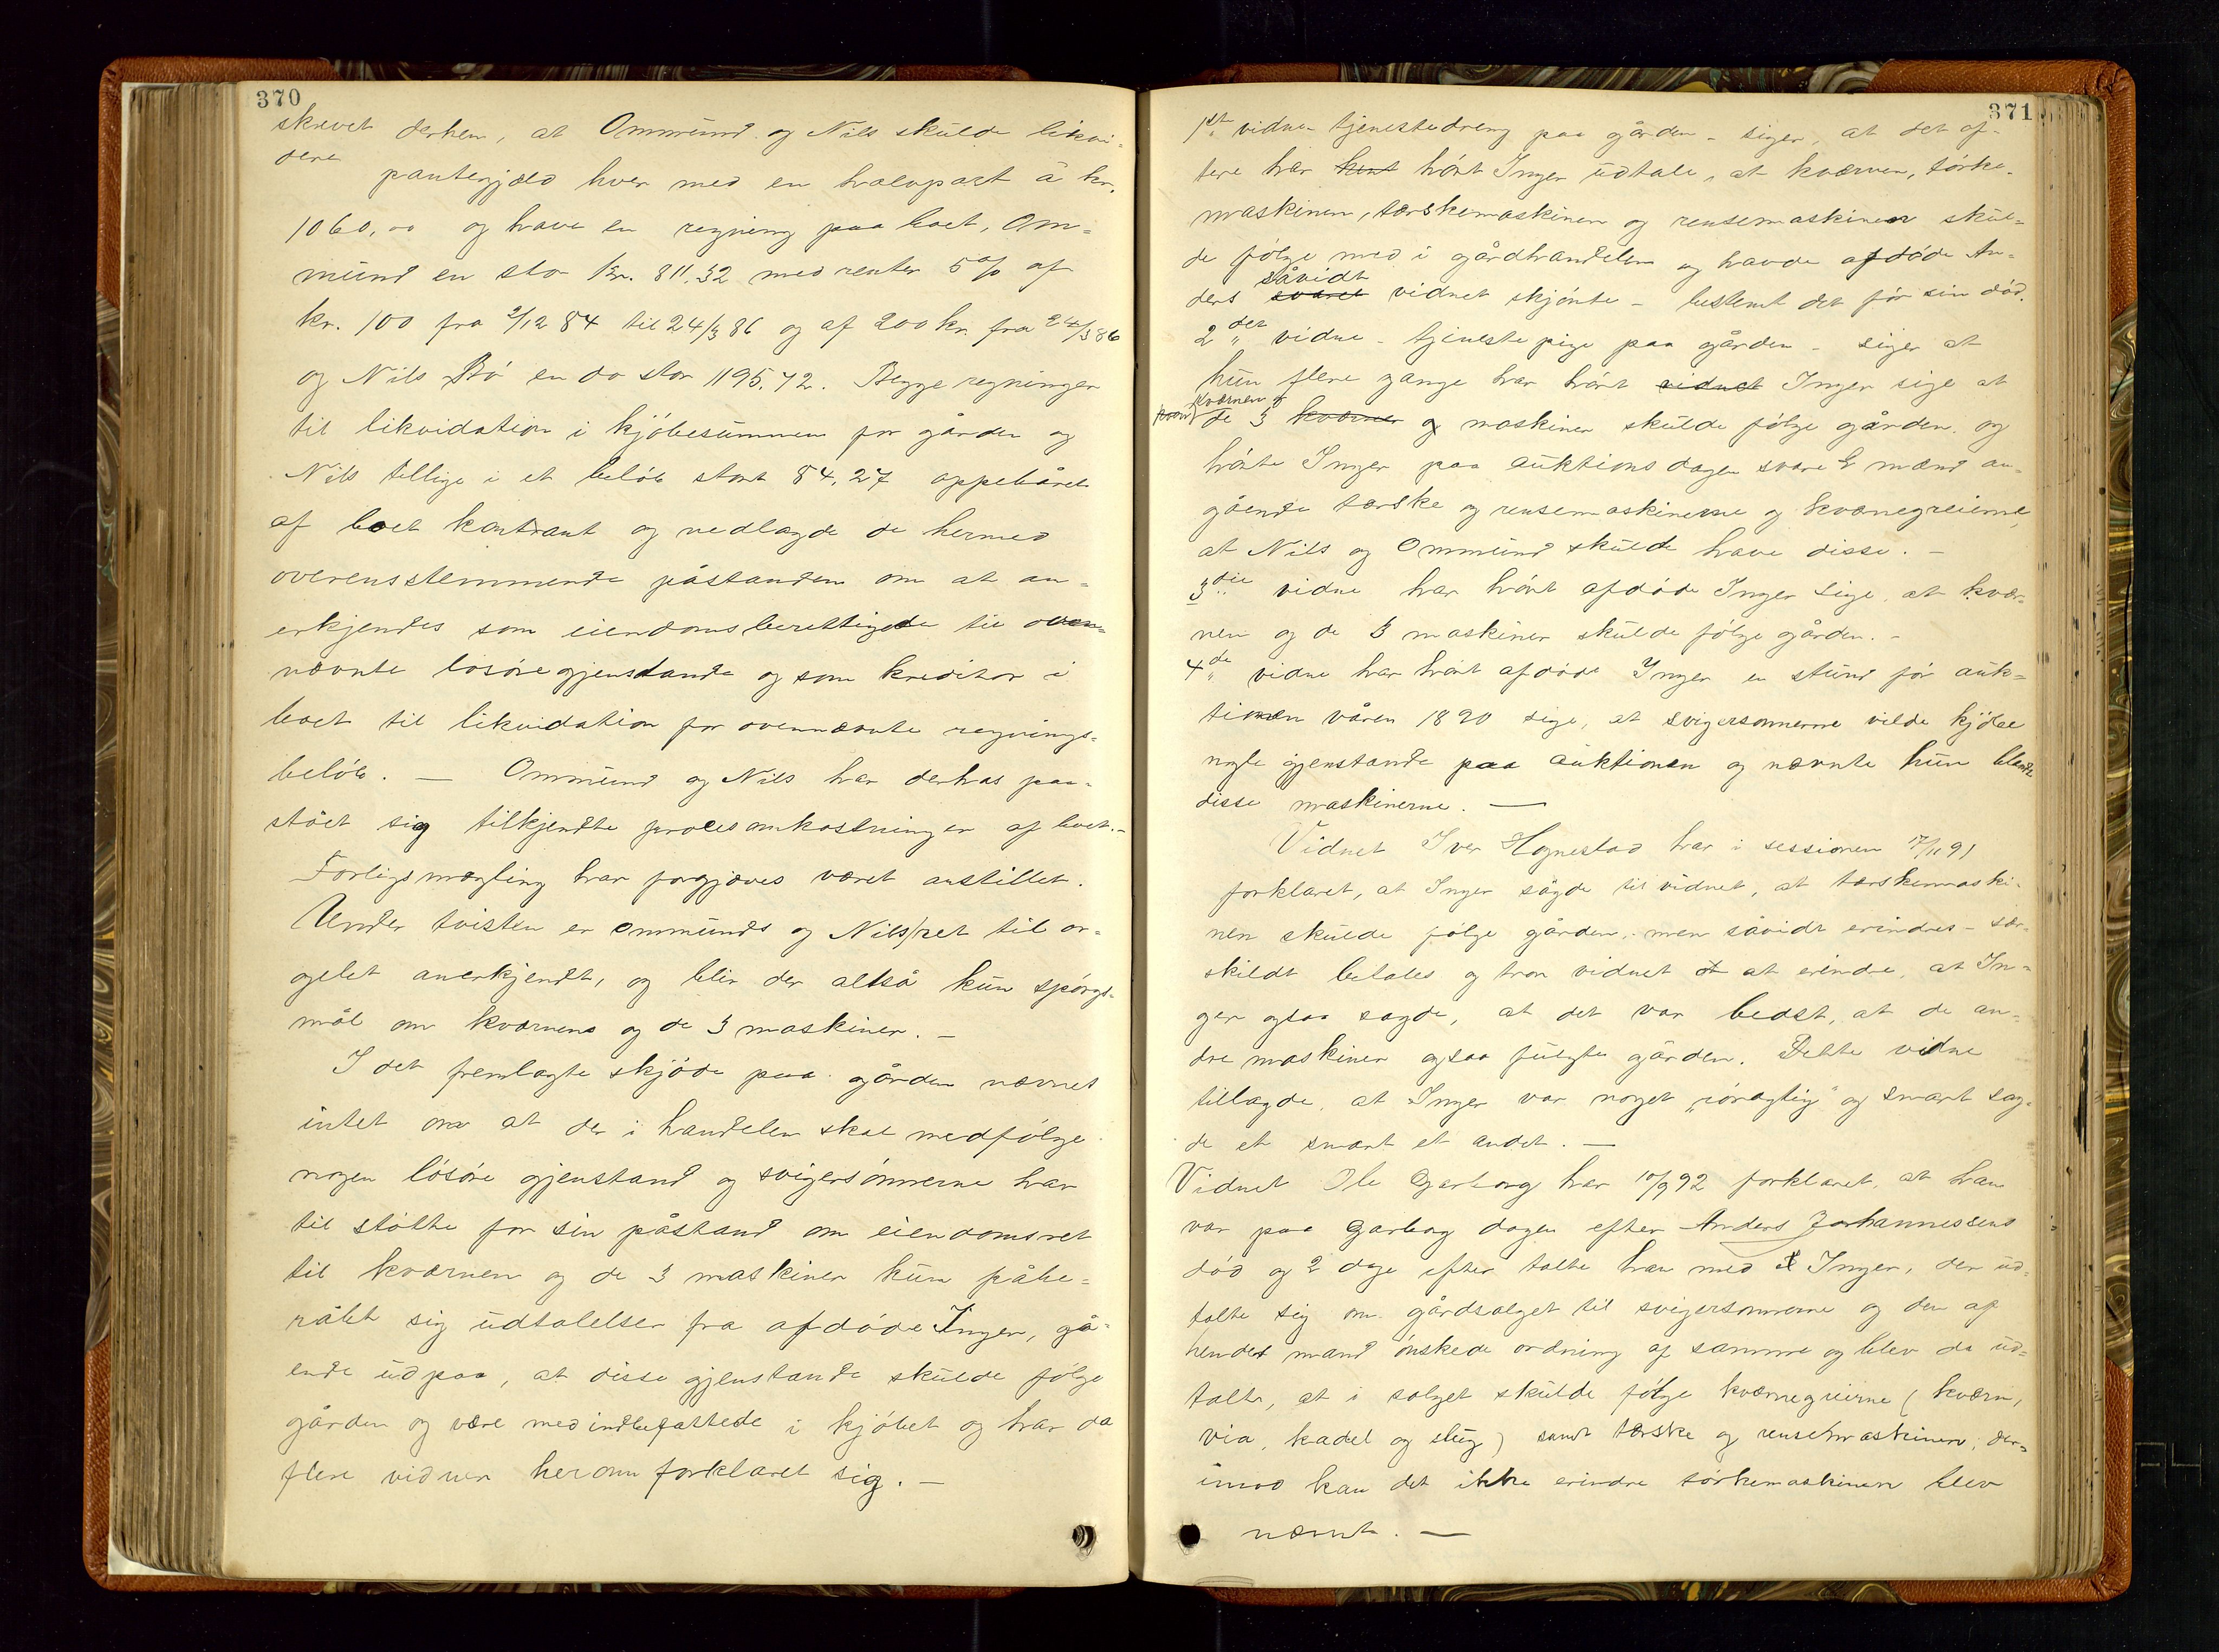 370
skrevet derhen, at Ommund og Nils skulde likvi-
dere
pantegjæld hver med en halvpart á kr.
1060,00 og have en regning paa boet, Om=
mund en stor Kr. 811.32 med renter 5% af
kr. 100 fra 2/12 84 til 24/3 86 og af 200 kr. fra 24/3 86
og Nils Bö en do stor 1195.72. Begge regninger
til likvidation i kjöbesummen for gården og
Nils tillige i et belöb stort 84,27 oppebåret
af boet kontrant og nedlagde de hermed
overensstemmende påstanden om at an=
erkjendes som eiendomsberettigede til oven=
nævnte lösöregjenstande og som kreditor i
boet til likvidation for ovennævnte regnings=
belöb. — Ommund og Nils har derhos paa-
stået sig tilkjendte procesomkostninger af boet. -
Forligsmægling har forgjæves været anstillet.
Under tvisten er Ommunds og Nils's ret til or=
gelet anerkjendt, og blir der altså kun spörgs=
mål om kværnens og de 3 maskiner. —
I det fremlagte skjöde paa gården nævnes
intet om at der i handelen skal medfölge
nogen lösöre gjenstand og svigersönnerne har
til stötte for sin påstand om eiendomsret
til kværnen og de 3 maskiner kun påbe=
råbt sig udtalelser fra afdöde Inger, gå=
ende ud paa, at disse gjenstande skulde fölge
gården og være medindbefattede i kjöbet og har da
flere vidner herom forklaret sig. —
371
1st vidne tjenestedreng paa gården - siger, at det of-
tere har hört hört Inger udtale, at kværnen, törke-
maskinen, tærskemaskinen og rensemaskinen skul=
de fölge med i gårdhandelen og havde afdöde An=
såvidt
ders svaret vidnet skjönte - bestemt det för sin död.
2det vidne - tjenestepige paa gården - siger at
hun flere gange har hört vidnet Inger sige at
kværnen &
de 3 kværner og maskiner skulde fölge gården og
hörte Inger paa auktionsdagen svare 2 mænd an-
gående tærske og rensemaskinerne og kværnegreierne,
at Nils og Ommund skulde have disse. -
3die vidne har hört afdöde Inger sige, at kvær-
nen og de 3 maskiner skulde fölge gården. -
4de vidne har hört afdöde Inger en stund för auk=
tionen våren 1890 sige, at svigersönnerne vilde kjöbe
nogle gjenstande paa auktionen og nævnte hun blandt
disse maskinerne. —
Vidnet Iver Hognestad har i sessionen 17/11 91
forklaret, at Inger sågde til vidnet, at tærskemaski-
nen skulde fölge gården, men såvidt erindres - sær-
skildt betales og tror vidnet at at erindre, at In=
ger ogsaa sagde, at det var bedst, at de an=
dre maskiner ogsaa fulgte gården. Dette vidne
tillagde, at Inger var noget „röragtig“ og snart sag-
de et snart et andet. —
Vidnet Ole Garborg har 10/9 92 forklaret, at han
var paa Garborg dagen efter Anders Johannessens
död og 2 dage efter talte han med I Inger, der ud=
talte sig om gårdsalget til svigersönnerne og den af
hendes mand önskede ordning af samme og blev da ud=
talte, at i salget skulde fölge kværnegreierne (kværn,
via, kadel og slug) samt tærske og rensemaskinen; der=
imod kan det ikke erindre törkemaskinen blev
nævnt. —